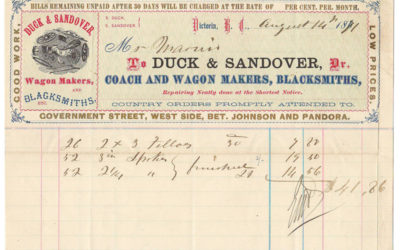 BILLS REMAINING UNPAID AFTER 30 DAYS WILL BE CHARGED AT THE RATE OF PER CENT. PER MONTH.
S. DUCK.
S. SANDOVER.
Victoria, B. C., August 14th 1891
GOOD WORK,
DUCK & SANDOVER
Wagon Makers,
AND
BLACKSMITHS,
ETC.
LOW PRICES.
Mr
To DUCK & SANDOVER, Dr.
COACH AND WAGON MAKERS, BLACKSMITHS,
Repairing Neatly done at the Shortest Notice.
COUNTRY ORDERS PROMPTLY ATTENDED TO.
GOVERNMENT STREET, WEST SIDE, BET. JOHNSON AND PANDORA.
26 2 x 3 Felloes 30 7 80
52 3 in Spokes 19 50
52 2 1/4 " finished 28 14 56
$41.86